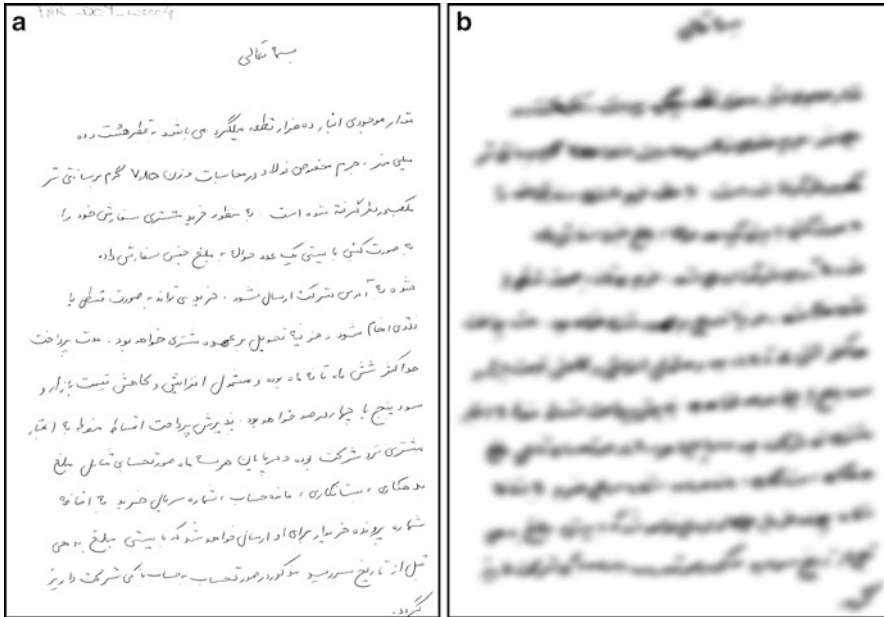 a
b
بسمه تعالی
مقدار موجودی انبار ده هزار قطعه میلگرد می باشد به قطر هشت و ده
میلی متر. جرم مخصوص فولاد در محاسبات وزن ۷٫۸۵ گرم بر سانتی متر
مکعب در نظر گرفته شده است. به منظور خرید مشتری سفارش خود را
به صورت کتبی بایستی یک عدد حواله به مبلغ جنس سفارش داده
شده به آدرس شرکت ارسال شود. خرید می تواند به صورت قسطی یا
نقدی انجام شود و هزینه تحویل بر عهده مشتری خواهد بود. مدت پرداخت
حداکثر شش ماه تا نه ماه بوده و مشمول افزایش و کاهش قیمت بازار و
سود پنج یا چهار درصد خواهد بود. پذیرش پرداخت اقساط منوط به اعتبار
مشتری نزد شرکت بوده و در پایان هر سه ماه صورتحسابی شامل مبلغ
بدهکاری، بستانکاری، مانده حساب، شماره سریال خرید به اضافه
شماره پرونده خریدار برای او ارسال خواهد شد که بایستی مبلغ بدهی
قبل از تاریخ سررسید مذکور در صورتحساب به حساب بانکی شرکت واریز
گردد.